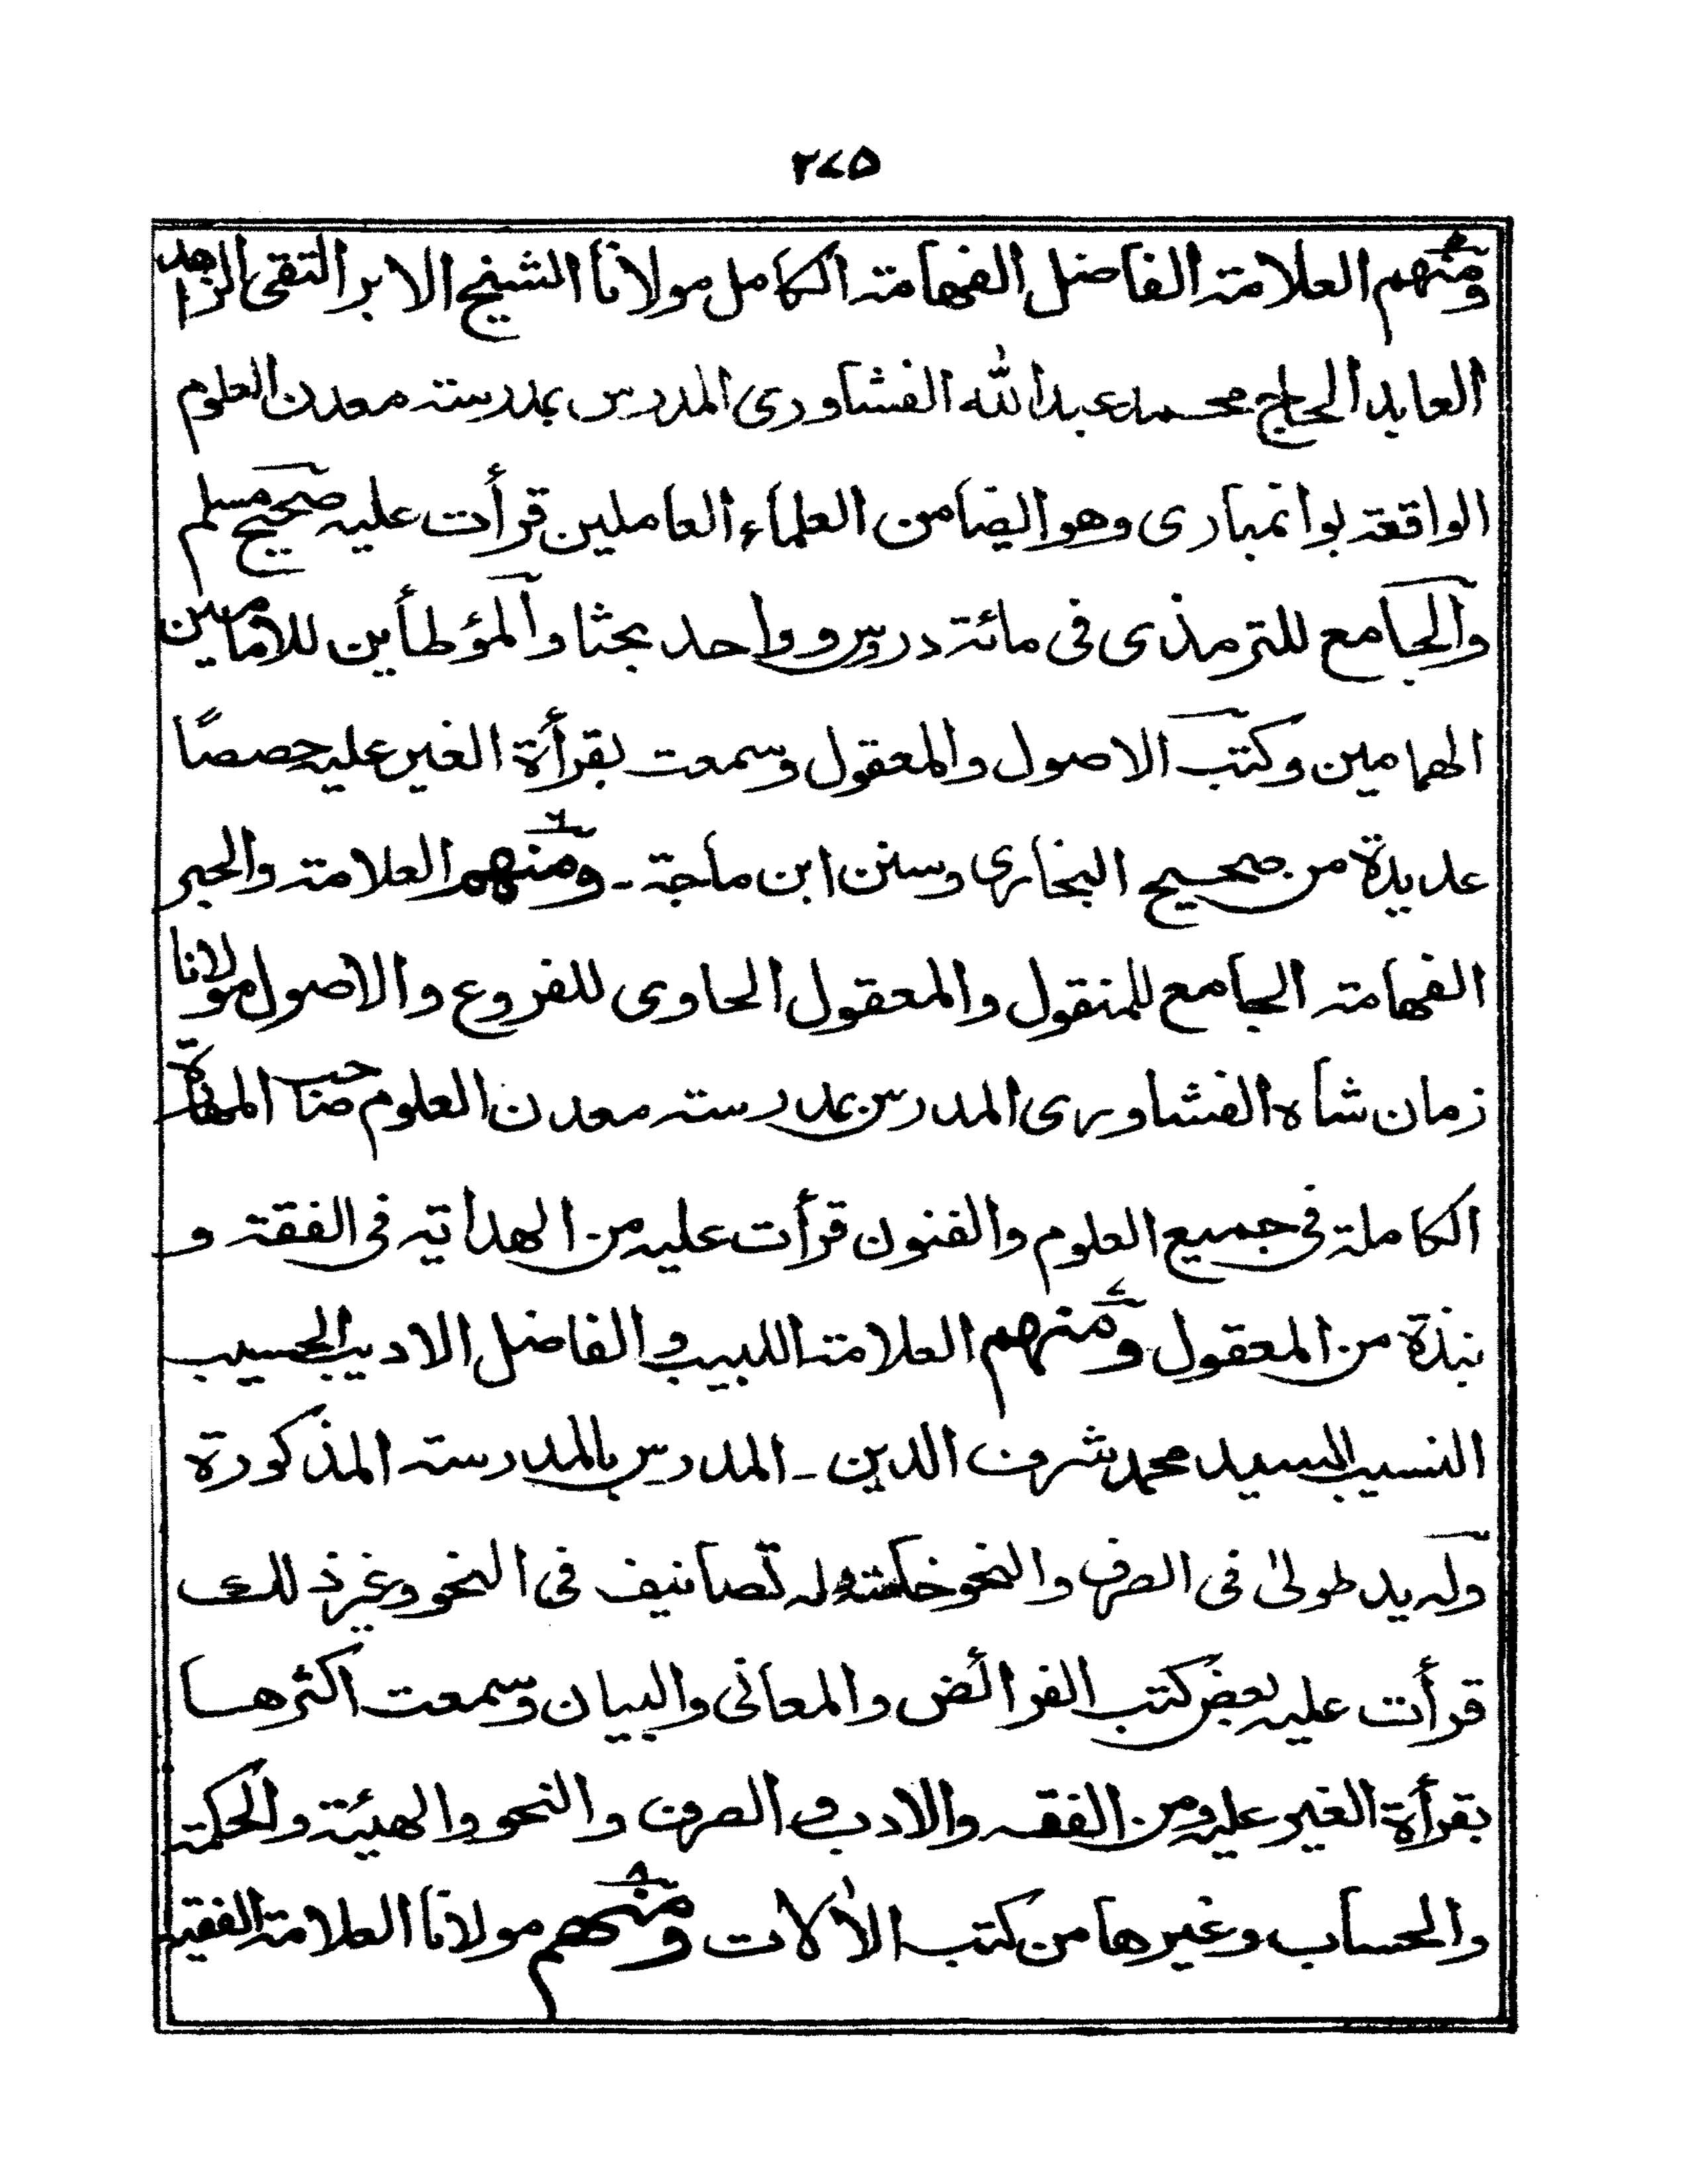 ٢٧٥
ومنهم العلامة الفاضل الفهامة الكامل مولانا الشيخ الابر التقى الزاهد
العابد الحاج محمد عبد الله الفشاورى المدرس بمدرسة معدن العلوم
الواقعة بوانمبارى وهو ايضا من العلماء العاملين قرأت عليه صحيح مسلم
والجامع للترمذى فى مائة درس وواحد بحثا والمؤطأين للامامين
الهمامين وكتب الاصول والمعقول وسمعت بقرأة الغير عليه حصصًا
عديدة من صحيح البخارى وسنن ابن ماجة ـ ومنهم ٦ العلامة والحبر
الفهامة الجامع للمنقول والمعقول الحاوى للفروع والاصول مولانا
زمان شاه الفشاورى المدرس بمدرسة معدن العلوم صاحب المهارة
الكاملة فى جميع العلوم والفنون قرأت عليه من الهداية فى الفقة و
نبذة من المعقول ومنهم ٧ العلامة اللبيب والفاضل الاديب الحسيب
النسيب السيد محمد شرف الدين ـ المدرس بالمدرسة المذكورة
وله يد طولىٰ فى الصرف والنحو وله تصانيف فى النحو وغيرذلك
قرأت عليه بعض كتب الفرائض والمعانى والبيان وسمعت اكثرها
بقرأة الغير عليه ومن الفقه والادب والصرف والنحو والهيئة والحكمة
والحساب وغيرها من كتب الاٰلات ومنهم ٨ مولانا العلامة الفقيه